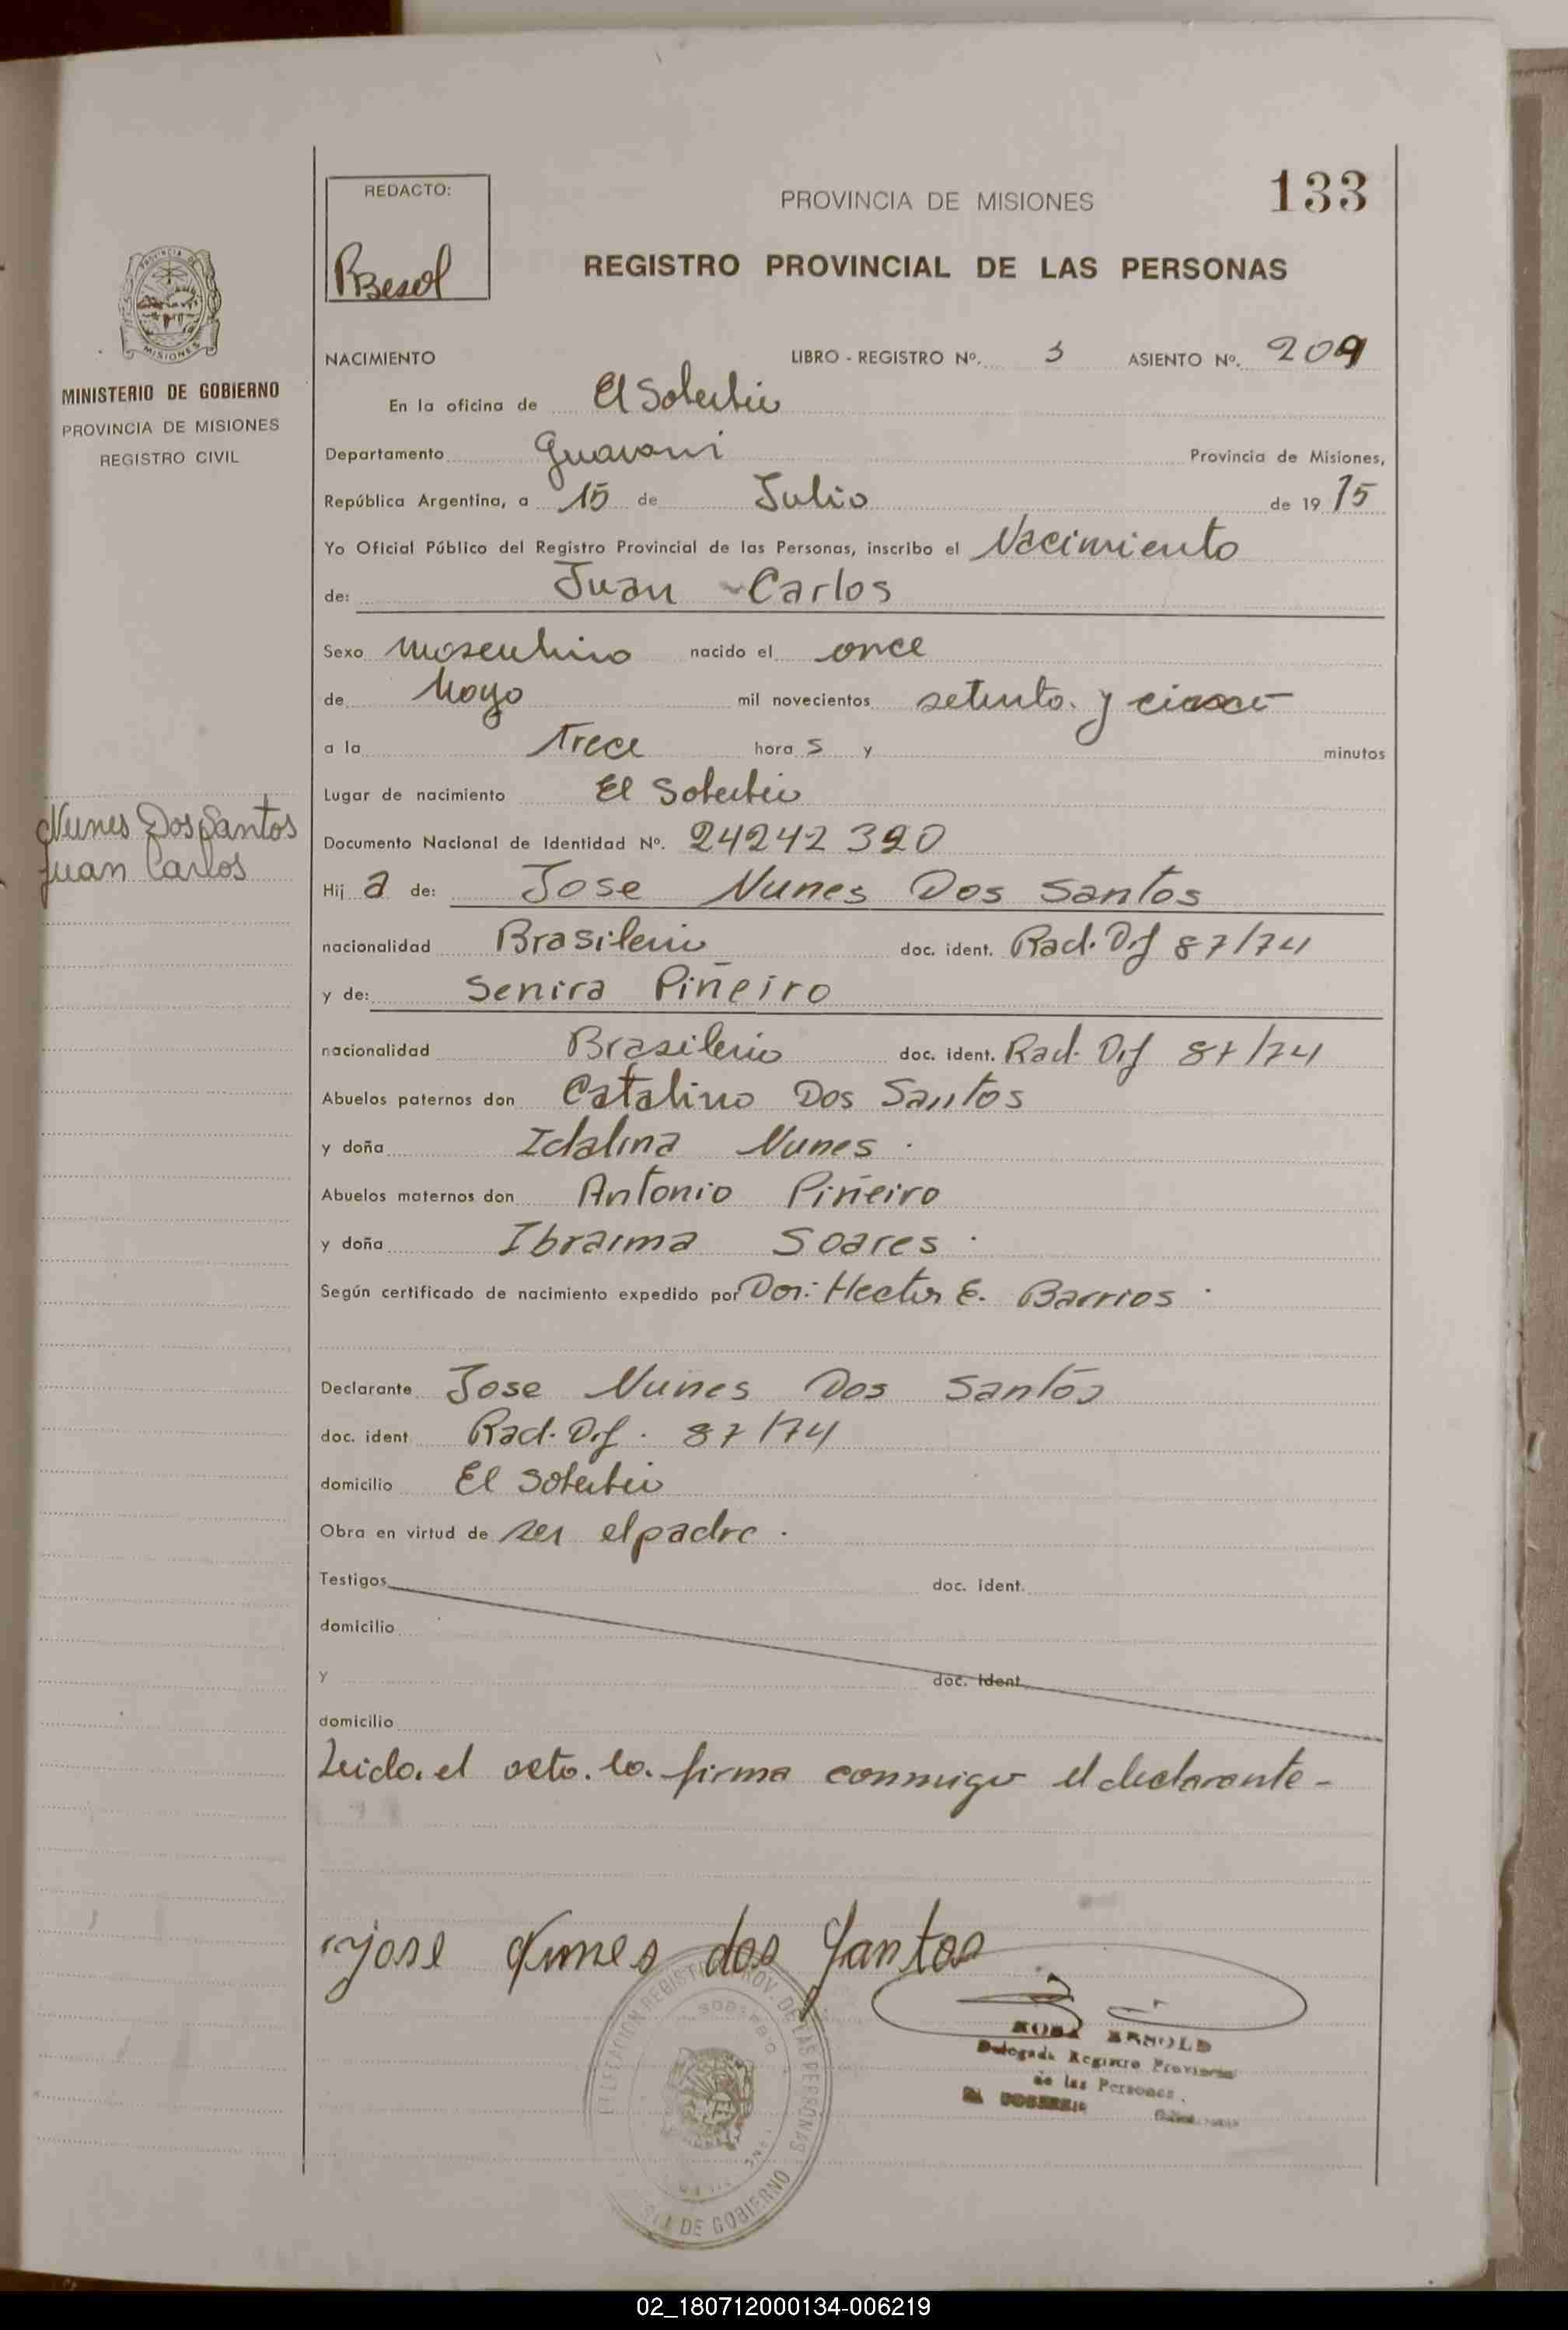 133
REDACTO:
PROVINCIA DE MISIONES
REGISTRO PROVINCIAL DE LAS PERSONAS
PROVINCIA DE
MISIONES
MINISTERIO DE GOBIERNO
PROVINCIA DE MISIONES
REGISTRO CIVIL
NACIMIENTO LIBRO - REGISTRO Nº. 3 ASIENTO Nº. 209
En la oficina de El Soberbio
Departamento Guarani Provincia de Misiones,
República Argentina, a 15 de Julio de 19 75
Yo Oficial Público del Registro Provincial de las Personas, inscribo el Nacimiento
de: Juan Carlos
Sexo masculino nacido el once
de Mayo mil novecientos setenta y cinco
a la trece hora s y minutos
Lugar de nacimiento El Soberbio
Nunes Dos Santos
Juan Carlos
Documento Nacional de Identidad Nº. 24242 320
Hij o de: Jose Nunes Dos Santos
nacionalidad Brasilerio doc. ident. Rad. Def 87/74
y de: Senira Piñeiro
nacionalidad Brasilerio doc. ident. Rad. Def 87/74
Abuelos paternos don Catalino Dos Santos
y doña Idalina Nunes .
Abuelos maternos don Antonio Piñeiro
y doña Ibraima Soares .
Según certificado de nacimiento expedido por Dor: Hector E. Barrios .
Declarante Jose Nunes Dos Santos
doc. ident. Rad. Def. 87/74
domicilio El Soberbio
Obra en virtud de ser el padre .
Testigos doc. ident.
domicilio
y doc. ident.
domicilio
Leida el acta. la firma conmigo el declarante -
jose nunes dos santos
ROSA ARNOLD
Delegada Registro Provincial
de las Personas
EL SOBERBIO
DELEGACION REGISTRO PROV. DE LAS PERSONAS
DE GOBIERNO
02_180712000134-006219